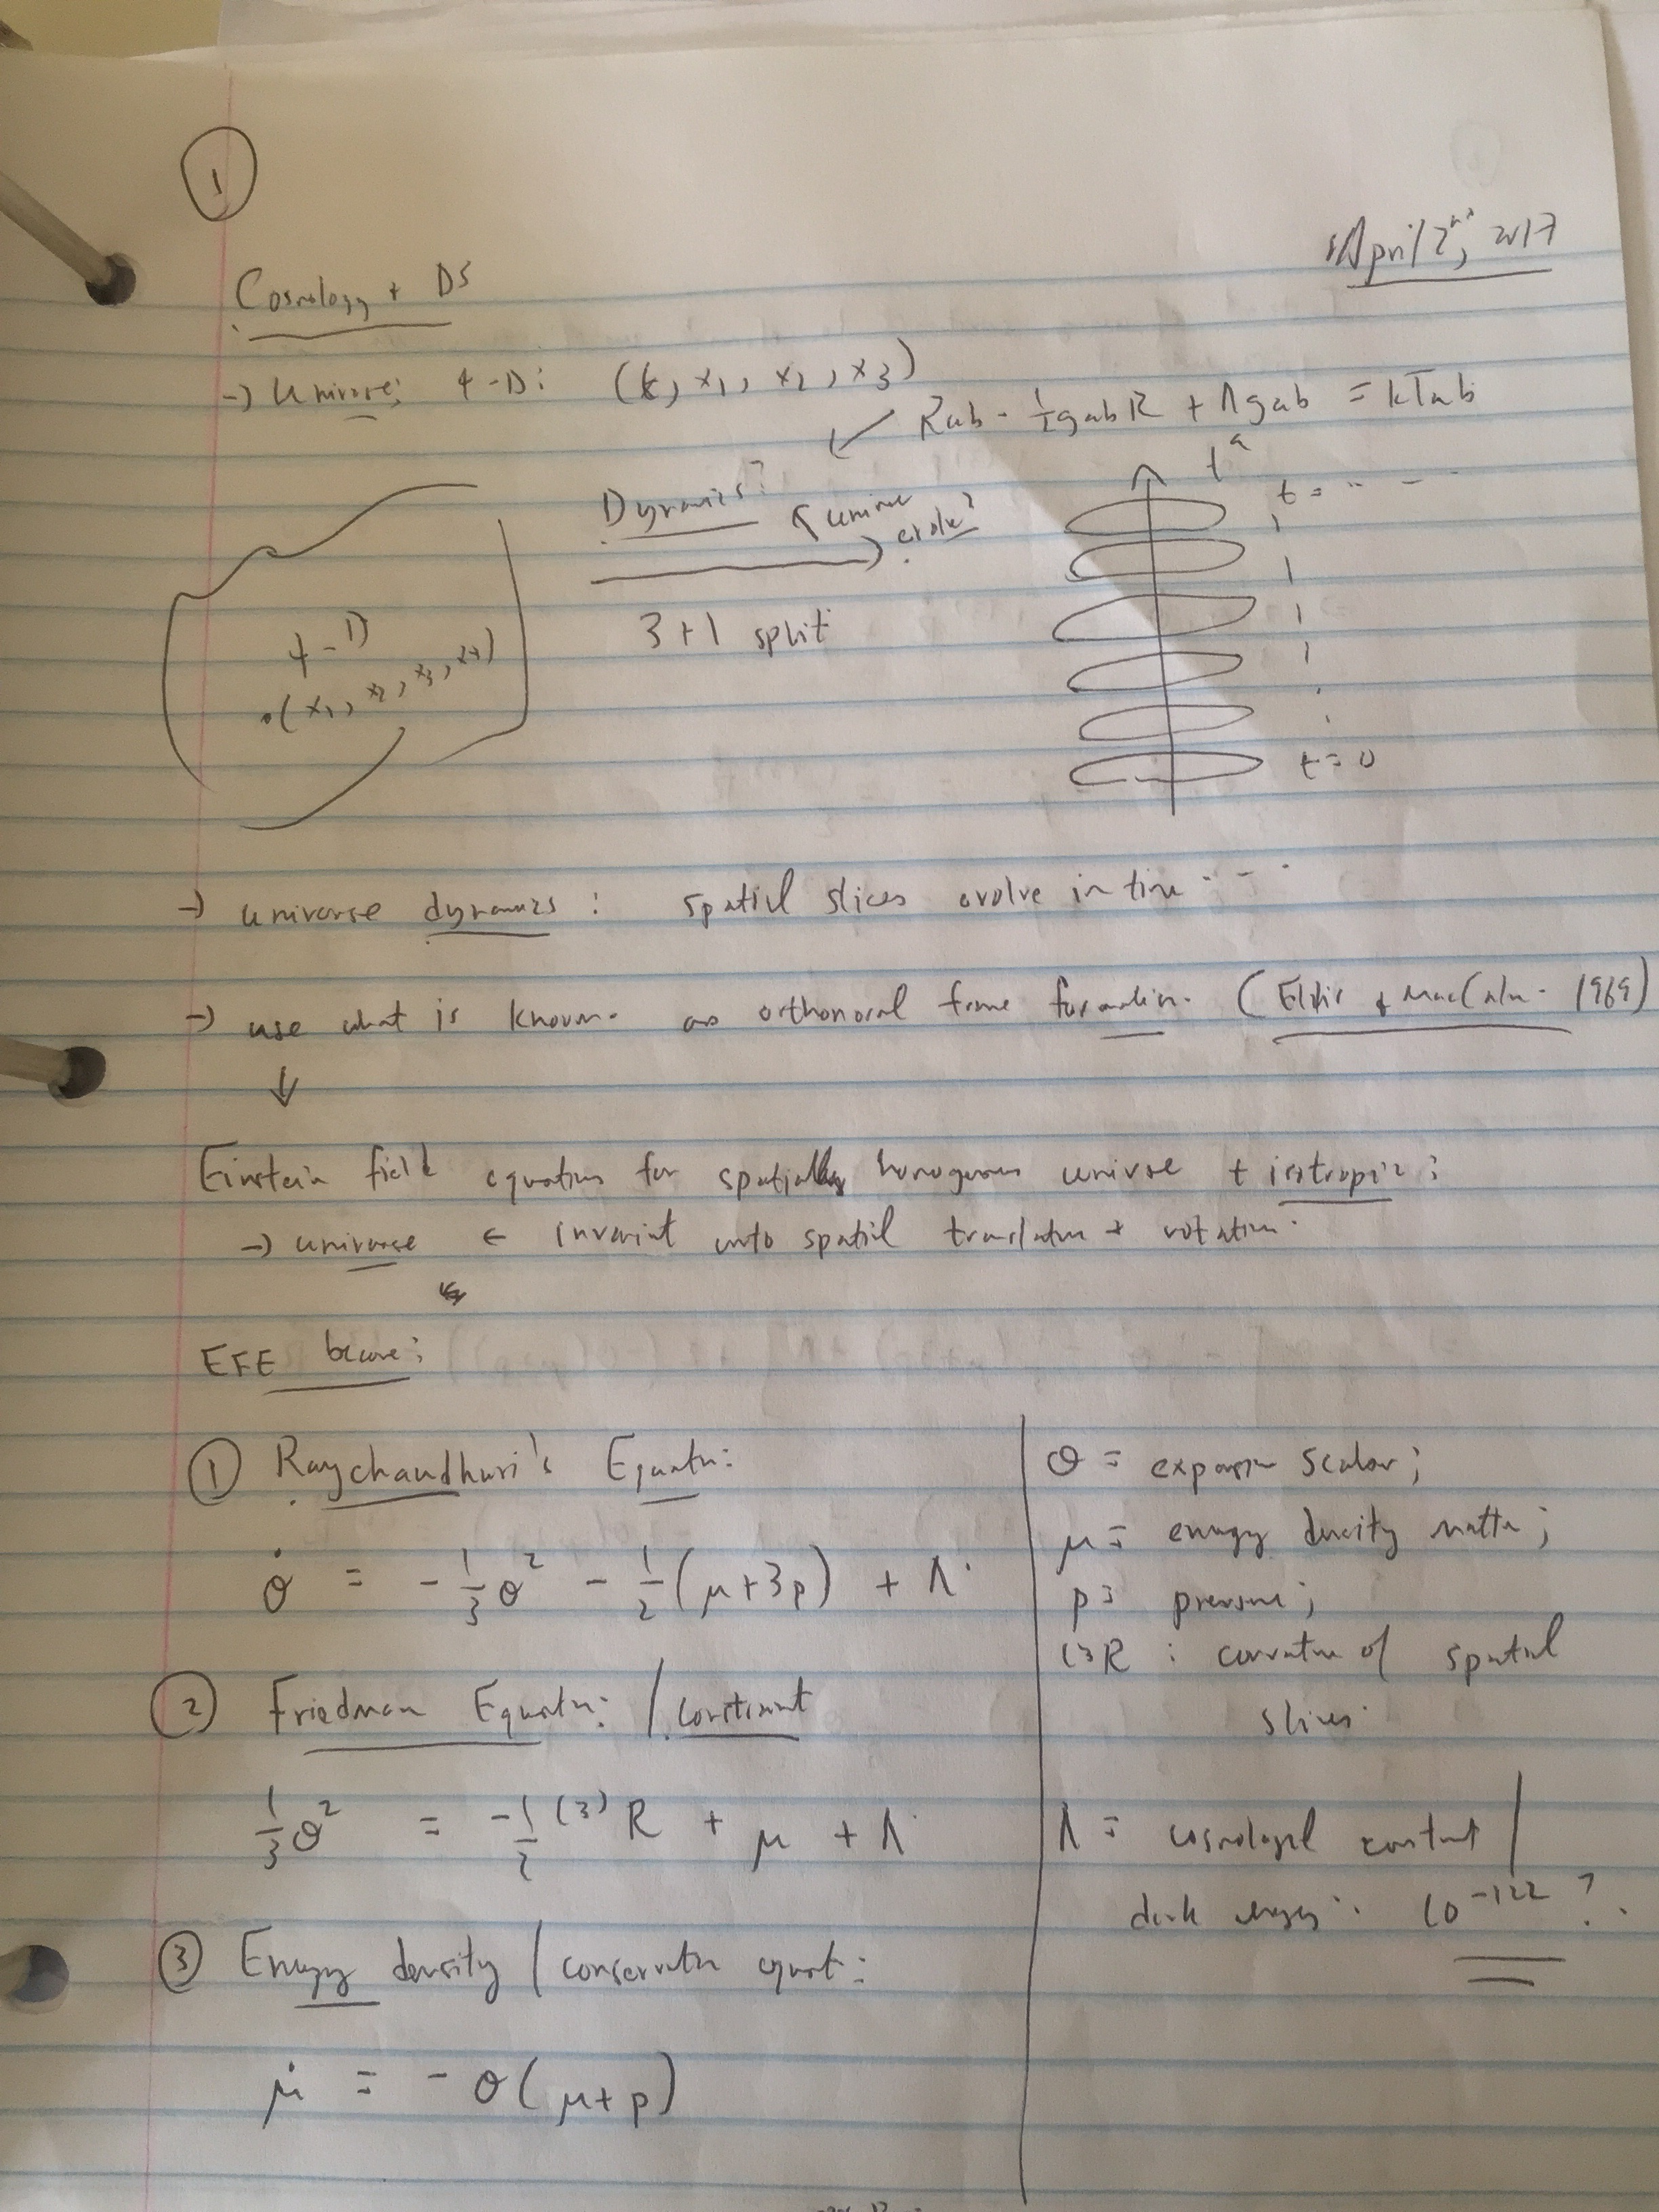 1
April 2nd, 2017
Cosmology + DS
→ Universe: 4-D: (t, x1, x2, x3)
Rab - 1/2 gab R + Λgab = kTab
Dynamics? universe evolve?
3+1 split
4-D
•(x1, x2, x3, x4)
ta
t = ...
t=0
→ universe dynamics: spatial slices evolve in time ...
→ use what is known as orthonormal frame formalism. (Ellis & MacCallum 1969)
↓
Einstein field equations for spatially homogenous universe + isotropic:
→ universe ← invariant unto spatial translation + rotation.
EFE become:
① Raychaudhuri's Equation:
θ̇ = -1/3 θ² - 1/2 (μ+3p) + Λ.
② Friedman Equation: / constraint
1/3 θ² = -1/2 (3)R + μ + Λ.
③ Energy density / conservation equat:
μ̇ = -θ(μ+p)
θ = expansion scalar;
μ = energy density matter;
p = pressure;
(3)R : curvature of spatial
slices.
Λ = cosmological constant /
dark energy: 10^-122 ?